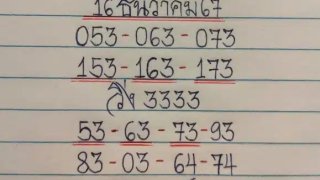 16 ธันวาคม 67
053-063-073
153-163-173
วิ่ง 3333
53-63-73-93
83-03-64-74